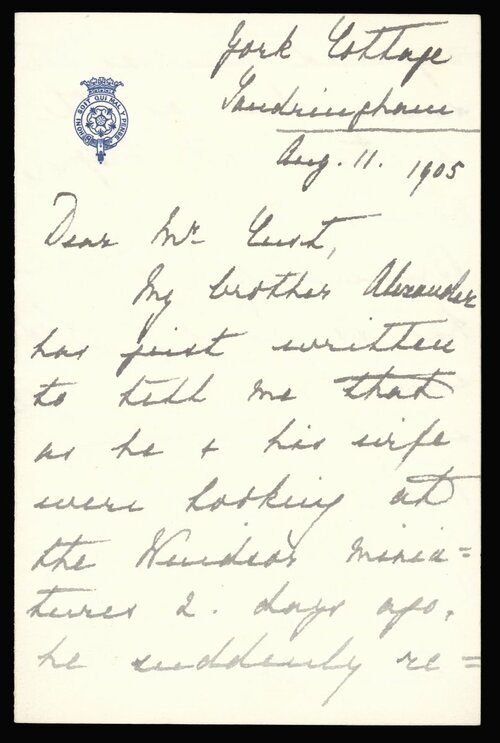 York Cottage
Sandringham
Aug. 11. 1905
HONI SOIT QUI MAL Y PENSE
Dear Mr Cust,
My brother Alexander
has just written
to tell me that
as he + his wife
were looking at
the Windsor minia=
tures 2. days ago,
he suddenly re=